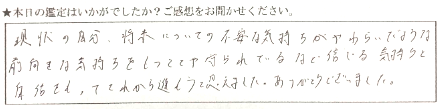 ★本日の鑑定はいかがでしたか？ご感想をお聞かせください。
現状の自分、将来についての不安な気持ちがやわらいだような
前向きな気持ちをもつことや守られているなど信じる気持ちと
自信をもってこれから進もうと思えました。ありがとうございました。